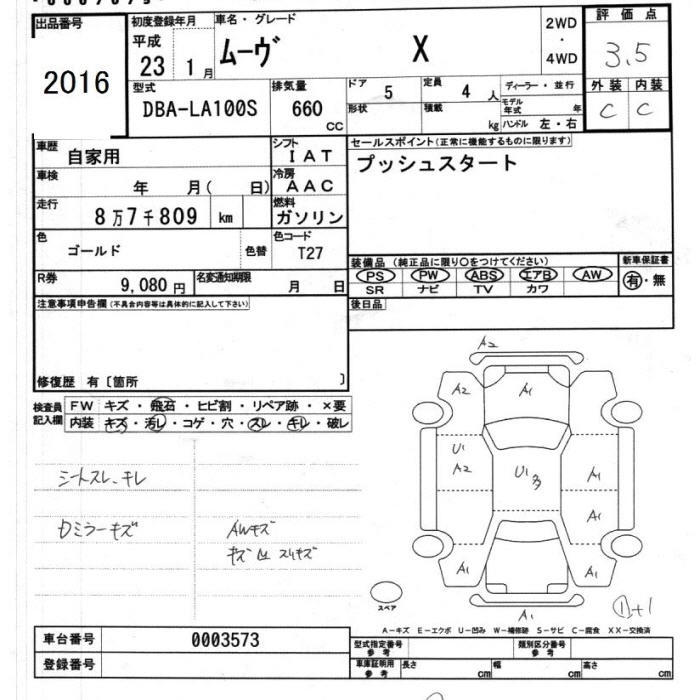 出品番号 2016
初度登録年月 平成 23 1月
車名・グレード ムーヴ X
2WD・4WD
評価点 3.5
外装 内装
C C
型式 DBA-LA100S
排気量 660 CC
ドア 5
定員 4 人
形状
積載 kg
ディーラー・並行
モデル年式 年
ハンドル 左・右
車歴 自家用
シフト IAT
車検 年 月( 日)
冷房 AAC
走行 8万7千809 km
燃料 ガソリン
色 ゴールド 色替
色コード T27
R券 9,080円
名変通知期限 月 日
セールスポイント(正常に機能するものに限ります)
プッシュスタート
装備品 (純正品に限り○をつけてください)
PS PW ABS エアB AW
SR ナビ TV カワ
新車保証書
有・無
後日品
注意事項申告欄(不具合内容等は具体的に記入して下さい)
修復歴 有〔箇所 〕
検査員記入欄
FW キズ・飛石・ヒビ割・リペア跡・×要
内装 キズ・汚レ・コゲ・穴・スレ・キレ・破レ
シートスレ、キレ
Dミラーキズ
AWキズ
A2
A2
A1
U1
A2
U1多
A1
A1
A1
A1
A1
①+1
スペア
A−キズ E−エクボ U−凹み W−補修跡 S−サビ C−腐食 XX−交換済
車台番号 0003573
登録番号
型式指定番号 参考
類別区分番号 参考
車庫証明用 参考 長さ cm 幅 cm 高さ cm